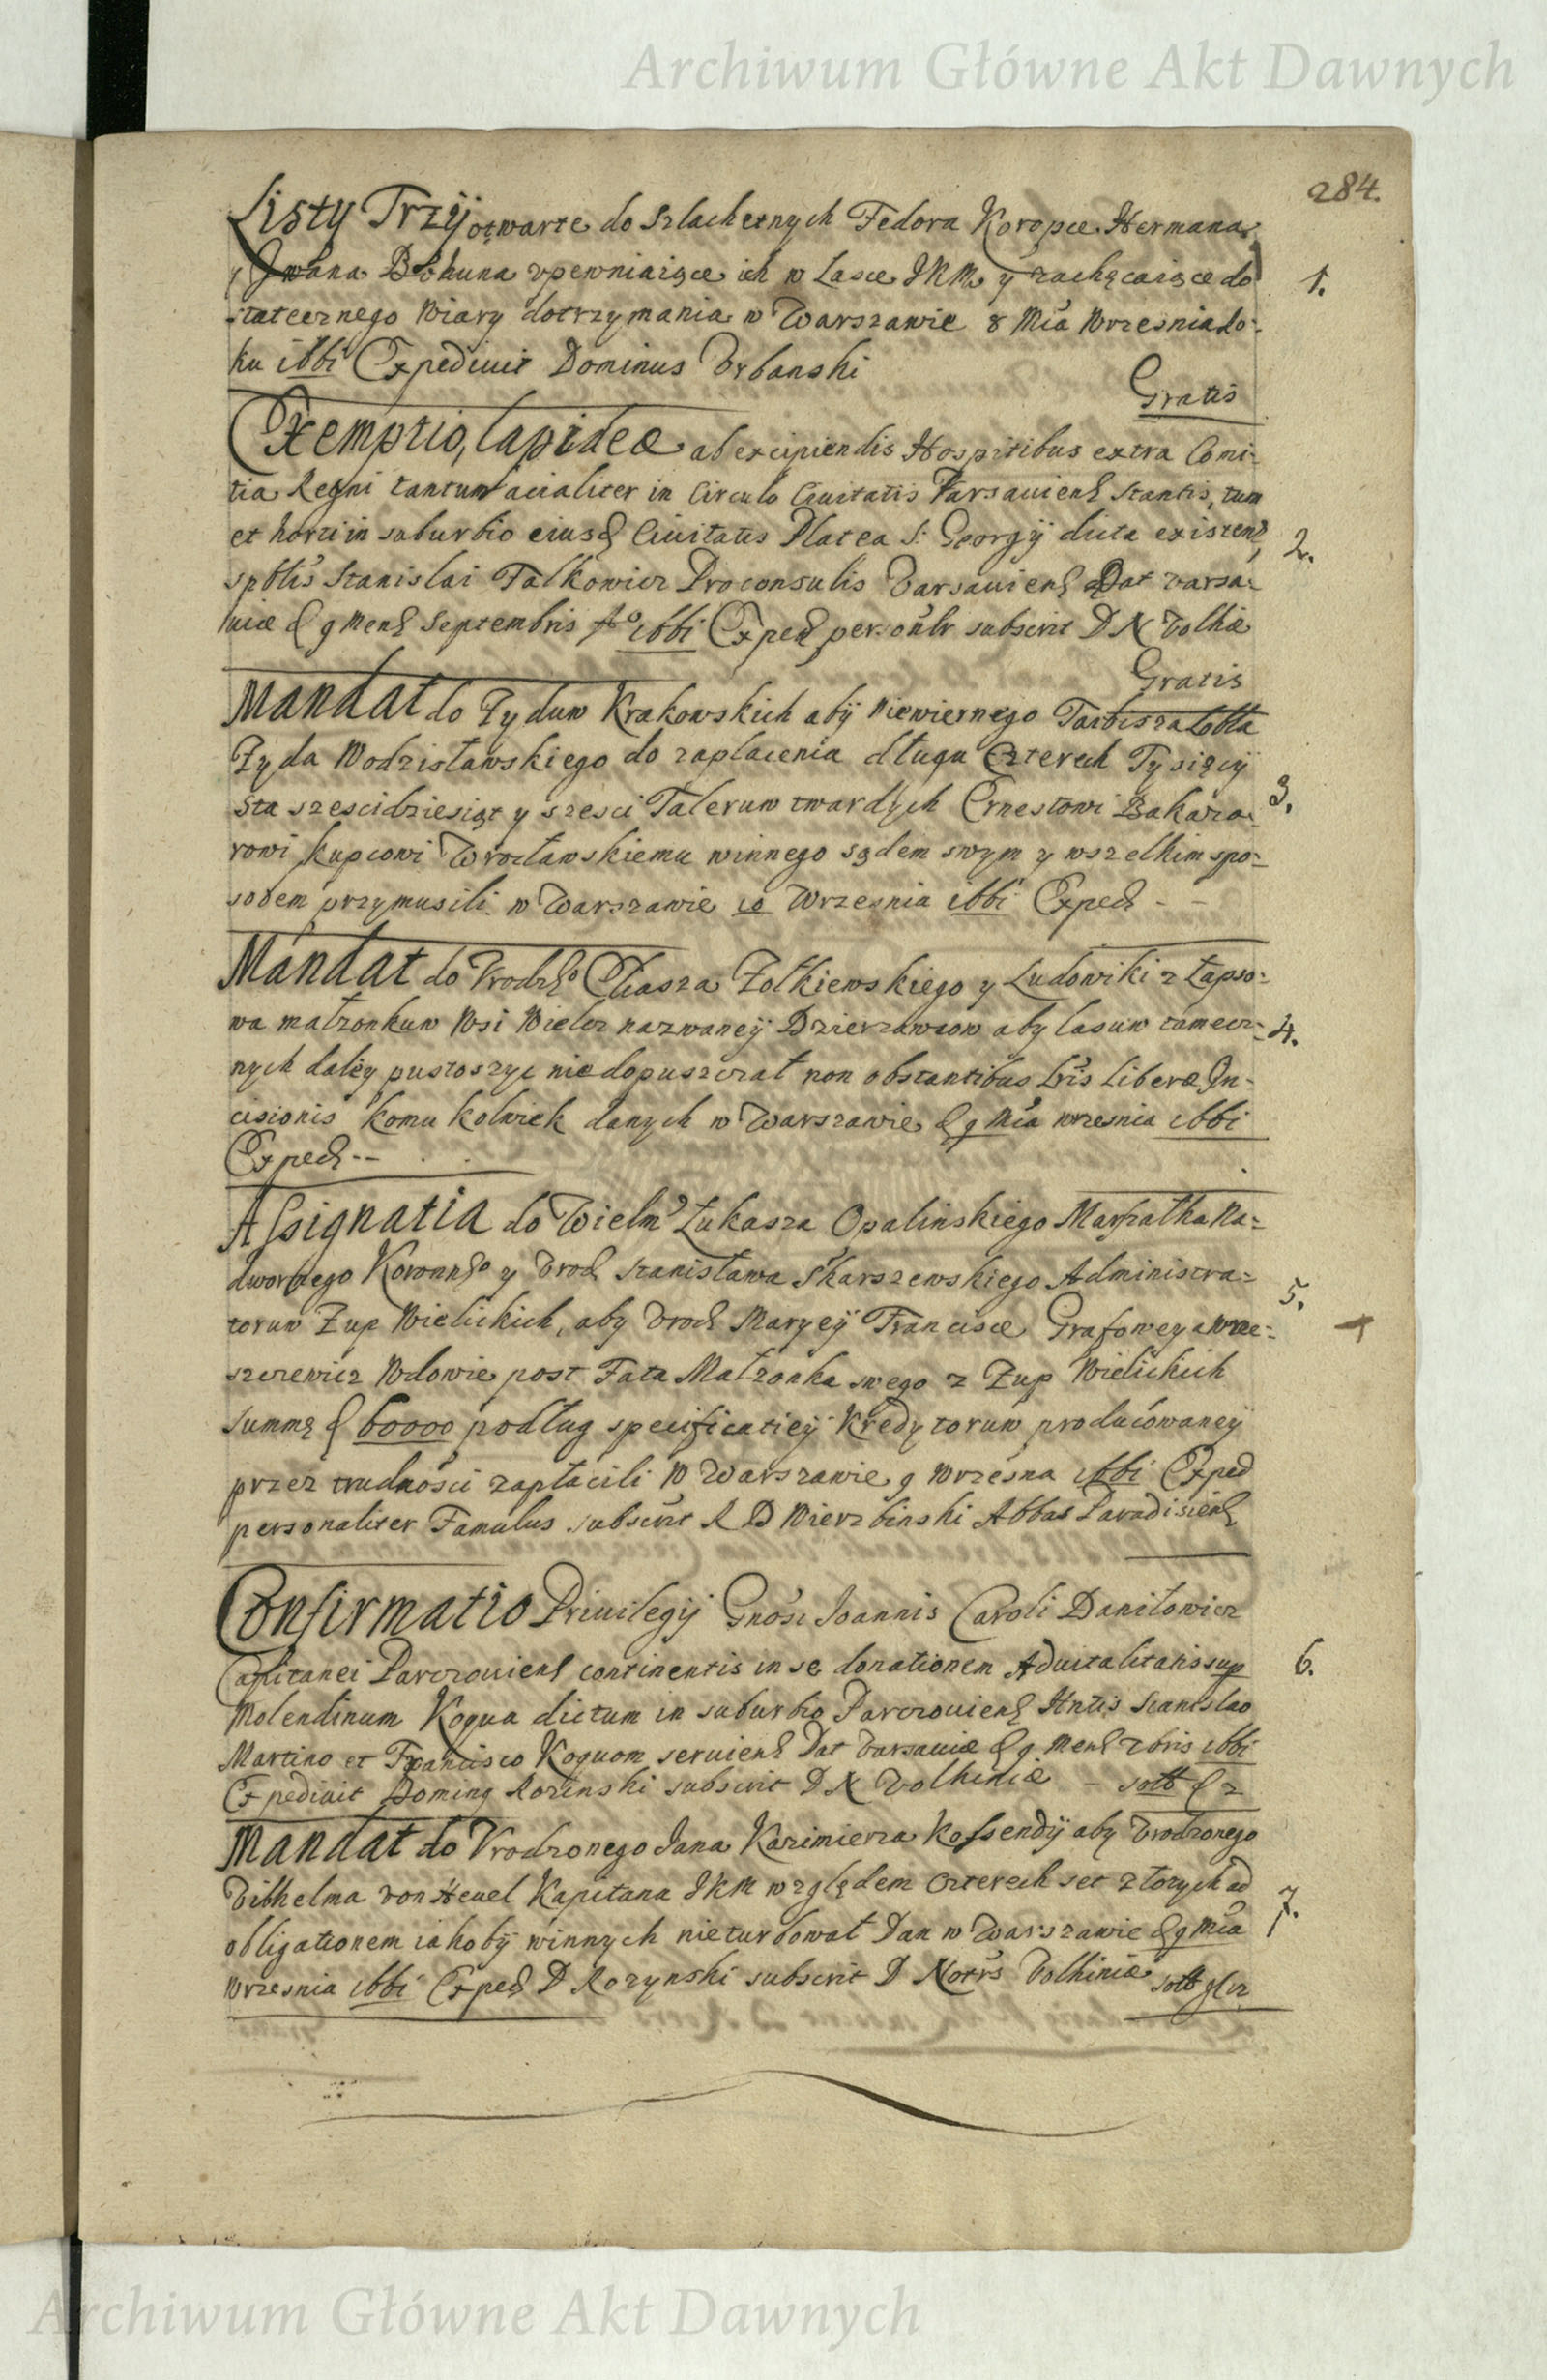 Archiwum Główne Akt Dawnych
284.
Listy Trzÿ otwarte do Szlachetnych Fedora Koropce Hermana
y Jwana Bohuna vpewniaiące ich w Lasce JKM y zachęcaiące do
statecznego Wiary dotrzymania w Warszawie 8 Mca Wrzesnia Ro-
ku 1661 Expediuit Dominus Vrbanski
1.
Gratis
Exemptio, lapideæ ab excipiendis Hospitibus extra Comi-
tia Regni tantum acialiter in Circulo Ciuitatis Varsauiens stantis, tum
et horti in suburbio eiusd Ciuitatis Platea S: Georgÿ dicta existens
sptlis Stanislai Falkowicz Proconsulis Varsauiens Dat Varsa-
uiæ d 9 Mens Septembris Ao 1661 Exped personlr subscrit D N Volhiæ
2.
Gratis
Mandat do Zyduw Krakowskich abÿ niewiernego
Zyda Wodzisławskiego do zapłacenia długu Czterech Tysięcÿ
sta szescidziesiąt y szesci Taleruw twardych Ernestowi
rowi kupcowi Wrocławskiemu winnego sądem swym y wszelkim spo-
sobem przymusili w Warszawie 10 Wrzesnia 1661 Exped - -
3.
Mandat do Vrodzo Eliasza Zołkiewskiego y Ludowiki z Łapso-
wa małzonkuw Wsi Wielcz nazwaneÿ Dzierzawcow aby lasuw tamecz-
nych daleÿ pustoszyc nie dopuszczał non obstantibus Lris Liberæ In-
cisionis komu kolwiek danych w Warszawie d 9 Mca wrzesnia 1661
Exped --
4.
Assignatia do Wielmo Łukasza Opalinskiego Marszałka Na-
dwornego Koronngo y Vrod Stanisława Skarszewskiego Administra-
toruw Zup Wielickich, aby Vrod Maryeÿ Francisce Grafowey a Wrze-
szczewicz Wdowie post Fata Małzonka swego z Zup Wielickich
summę f 60000 podług specificatieÿ Kredytoruw producowaneÿ
przez trudnosci zapłacili w Warszawie 9 Wrzesna 1661 Exped
personaliter Famulus subscrit R D Wierzbinski Abbas Paradisiens
5.
Confirmatio Priuilegÿ Gnosi Joannis Caroli Daniłowicz
Capitanei Parczouiens continentis in se donationem Aduitalitatis sup
Molendinum Kogua dictum in suburbio Parczouiens Hntis Stanislao
Martino et Francisco Koguom seruiens Dat Varsauiæ d 9 Mens 7bris 1661
Expediuit Doming Rozinski subscrit D N Volhiniæ - sott
6.
Mandat do Vrodzonego Jana Kazimierza Kossendÿ aby Vrodzonego
Vilhelma von Heuel Kapitana JKM względem Czterech set złotych ad
obligationem iakobÿ winnych nie turbował Dan w Warszawie d 9 Mca
Wrzesnia 1661 Exped D Rozynski subscrit D Notrs Volhiniæ
7.
Archiwum Główne Akt Dawnych